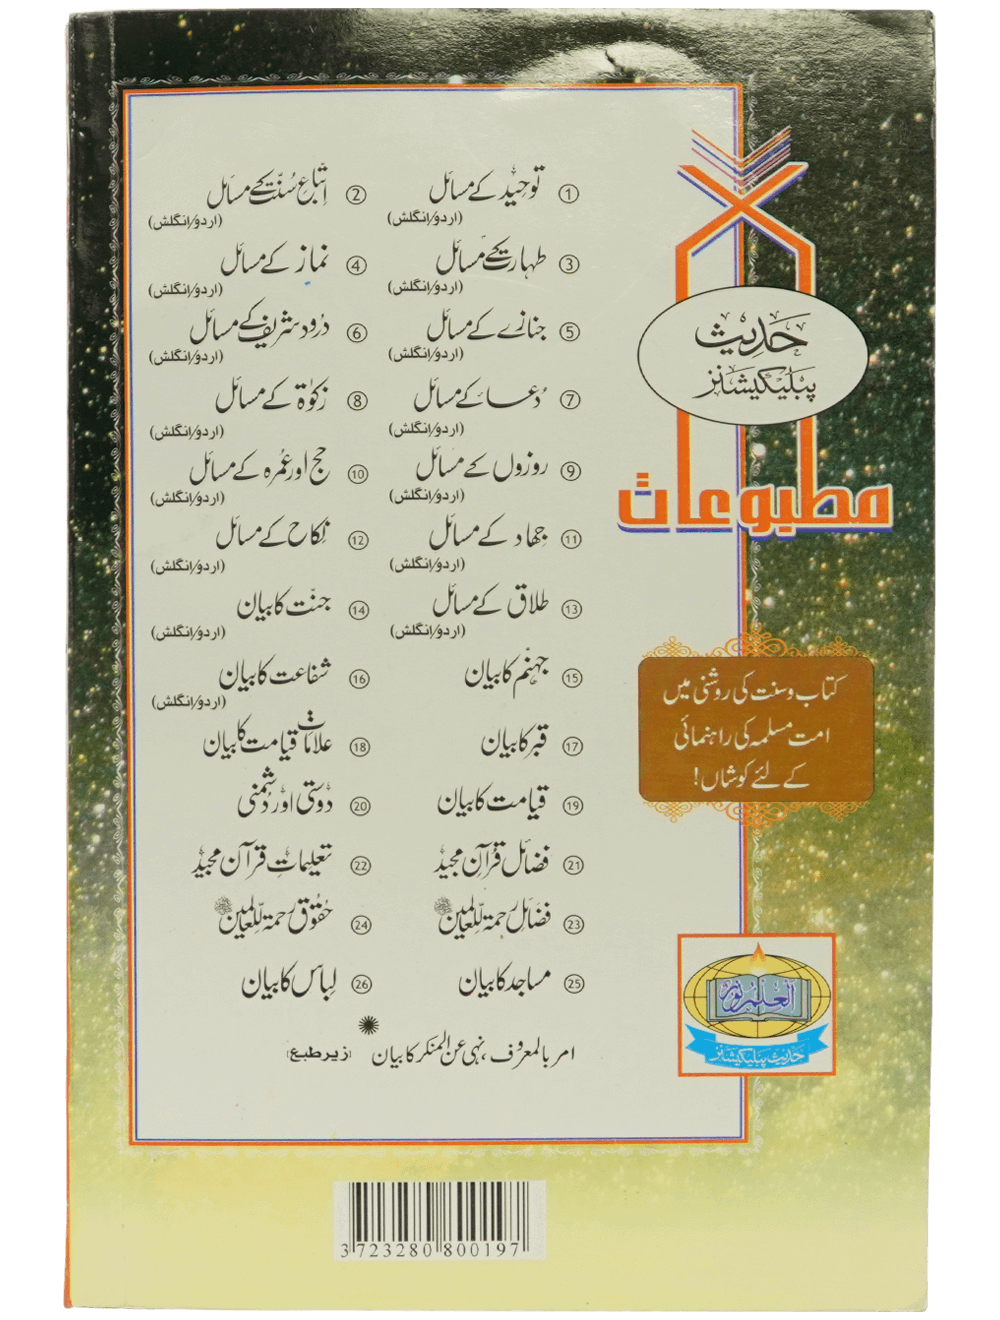 حدیث
پبلیکیشنز
مطبوعات
کتاب و سنت کی روشنی میں
امت مسلمہ کی راہنمائی
کے لئے کوشاں!
① توحید کے مسائل ② اتباع سنت کے مسائل
(اردو/انگلش) (اردو/انگلش)
③ طہارت کے مسائل ④ نماز کے مسائل
(اردو/انگلش) (اردو/انگلش)
⑤ جنازے کے مسائل ⑥ درود شریف کے مسائل
(اردو/انگلش) (اردو/انگلش)
⑦ دعا کے مسائل ⑧ زکوٰۃ کے مسائل
(اردو/انگلش) (اردو/انگلش)
⑨ روزوں کے مسائل ⑩ حج اور عمرہ کے مسائل
(اردو/انگلش) (اردو/انگلش)
⑪ جہاد کے مسائل ⑫ نکاح کے مسائل
(اردو/انگلش) (اردو/انگلش)
⑬ طلاق کے مسائل ⑭ جنت کا بیان
(اردو/انگلش) (اردو/انگلش)
⑮ جہنم کا بیان ⑯ شفاعت کا بیان
(اردو/انگلش)
⑰ قبر کا بیان ⑱ علامات قیامت کا بیان
⑲ قیامت کا بیان ⑳ دوستی اور دشمنی
㉑ فضائل قرآن مجید ㉒ تعلیمات قرآن مجید
㉓ فضائل رحمۃ للعالمین ﷺ ㉔ حقوق رحمۃ للعالمین ﷺ
㉕ مساجد کا بیان ㉖ لباس کا بیان
امر بالمعروف، نہی عن المنکر کا بیان (زیر طبع)
العلم نور
حدیث پبلیکیشنز
3 723280 800197